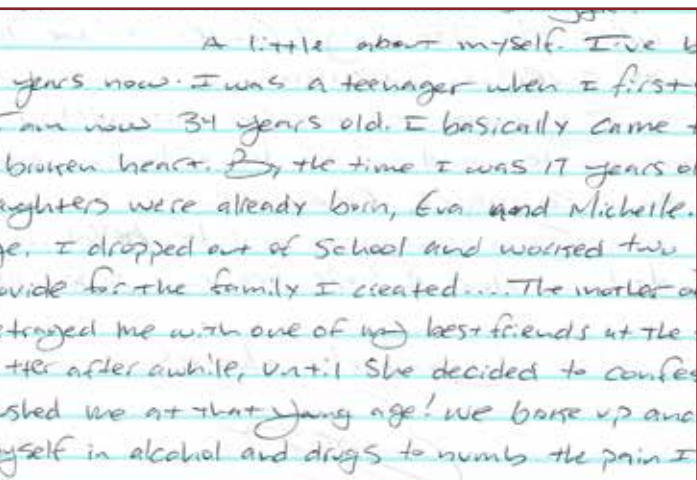 A little about myself. I've b
years now. I was a teenager when I first
I am now 34 years old. I basically came t
broken heart. By the time I was 17 years ol
aughters were already born, Eva and Michelle.
ge. I dropped out of School and worked two
ovide for the family I created.... The mother o
etrayed me with one of my best friends at the
tter after awhile, until She decided to confes
ushed me at that young age! We broke up and
yself in alcohol and drugs to numb the pain I